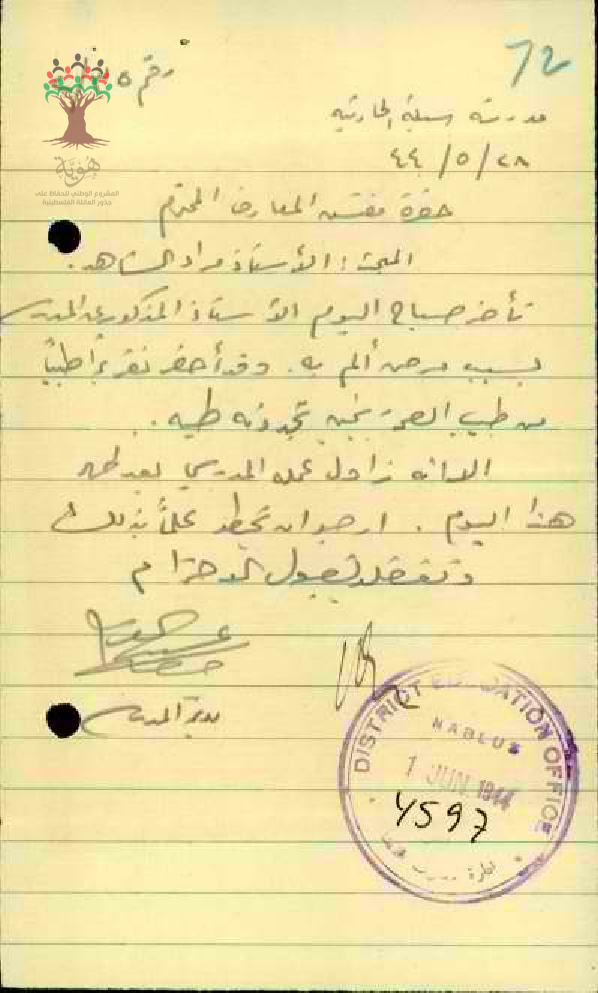 72
رقم
هُوِيَّة
المشروع الوطني للحفاظ على
جذور العائلة الفلسطينية
مدرسة سيلة الحارثية
٢٨/٥/٤٤
حضرة مفتش المعارف المحترم
المبحث: الأستاذ مراد الشاهد.
تأخر صباح اليوم الأستاذ المذكور عن المدرسة
بسبب مرض ألم به. وقد أحضر تقريراً طبياً
من طبيب الصحة بجنين تجدونه طيه.
الا انه زاول عمله المدرسي بعد ظهر
هذا اليوم. ارجو ان تحيطوا علماً بذلك
وتفضلوا بقبول الاحترام
مدير المدرسة
DISTRICT EDUCATION OFFICE
NABLUS
1 JUN 1944
4597